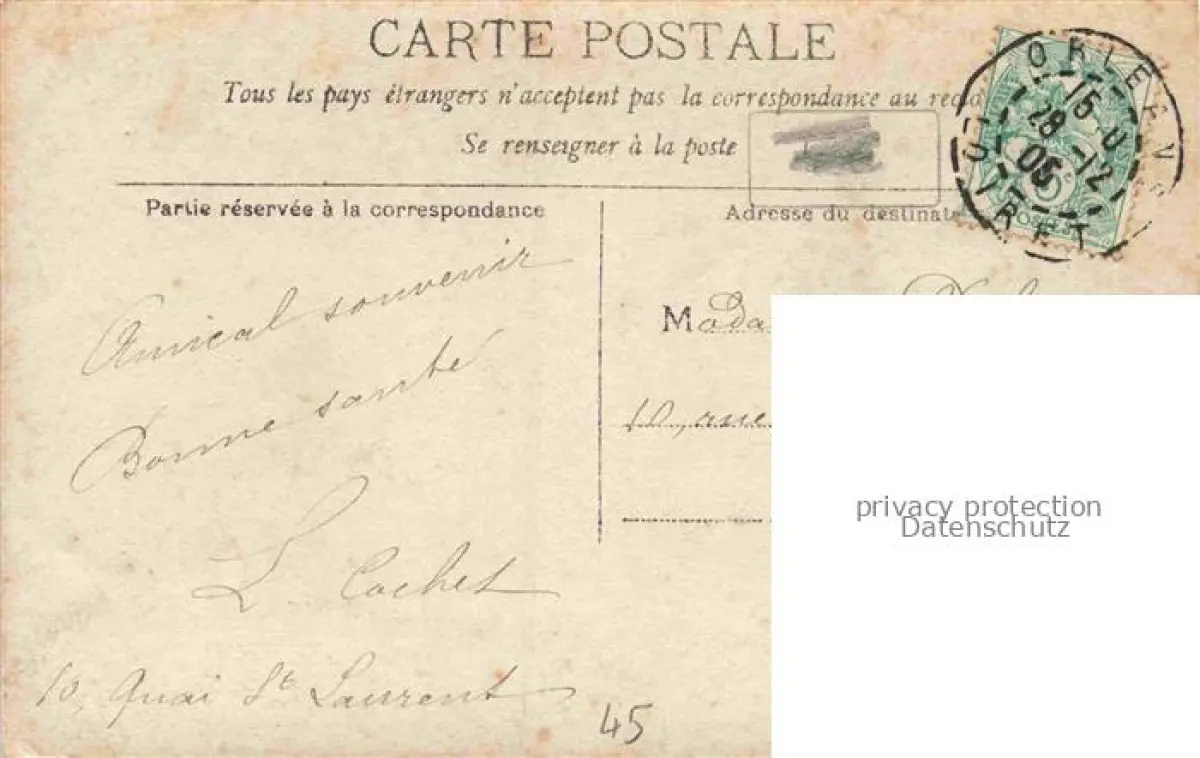 CARTE POSTALE
Tous les pays étrangers n'acceptent pas la correspondance au recto
Se renseigner à la poste
Partie réservée à la correspondance
Adresse du destinat
Amical souvenir
Bonne santé
L Cochet
10, Quai St Laurent
45
Mada
10, rue
ORLE
15
28 -12
05
LOIRET
privacy protection
Datenschutz